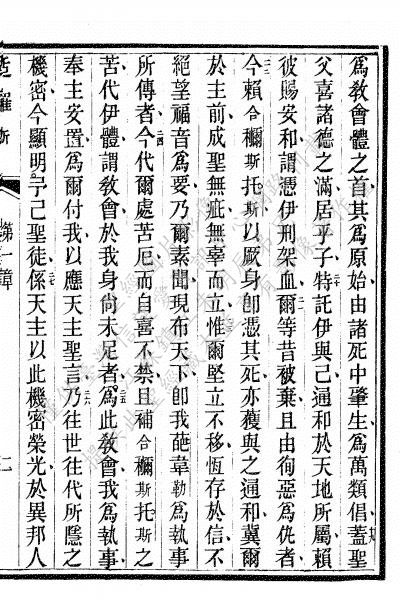 為教會體之首其為原始由諸死中肇生為萬類倡蓋聖
父喜諸德之滿居乎子特託伊與己通和於天地所屬賴
彼賜安和謂憑伊刑架血爾等昔被棄且由徇惡為仇者
今賴合穪斯托斯以厥身卽憑其死亦獲與之通和冀爾
於主前成聖無疵無辜而立惟爾堅立不移恆存於信不
絕望福音為要乃爾素聞現布天下卽我葩韋勒為執事
所傳者今代爾處苦厄而自喜不禁且補合穪斯托斯之
苦代伊體謂教會於我身尚未足者為此教會我為執事
奉主安置為爾付我以應天主聖言乃往世往代所隱之
機密今顯明予己聖徒係天主以此機密榮光於異邦人
第一章
二